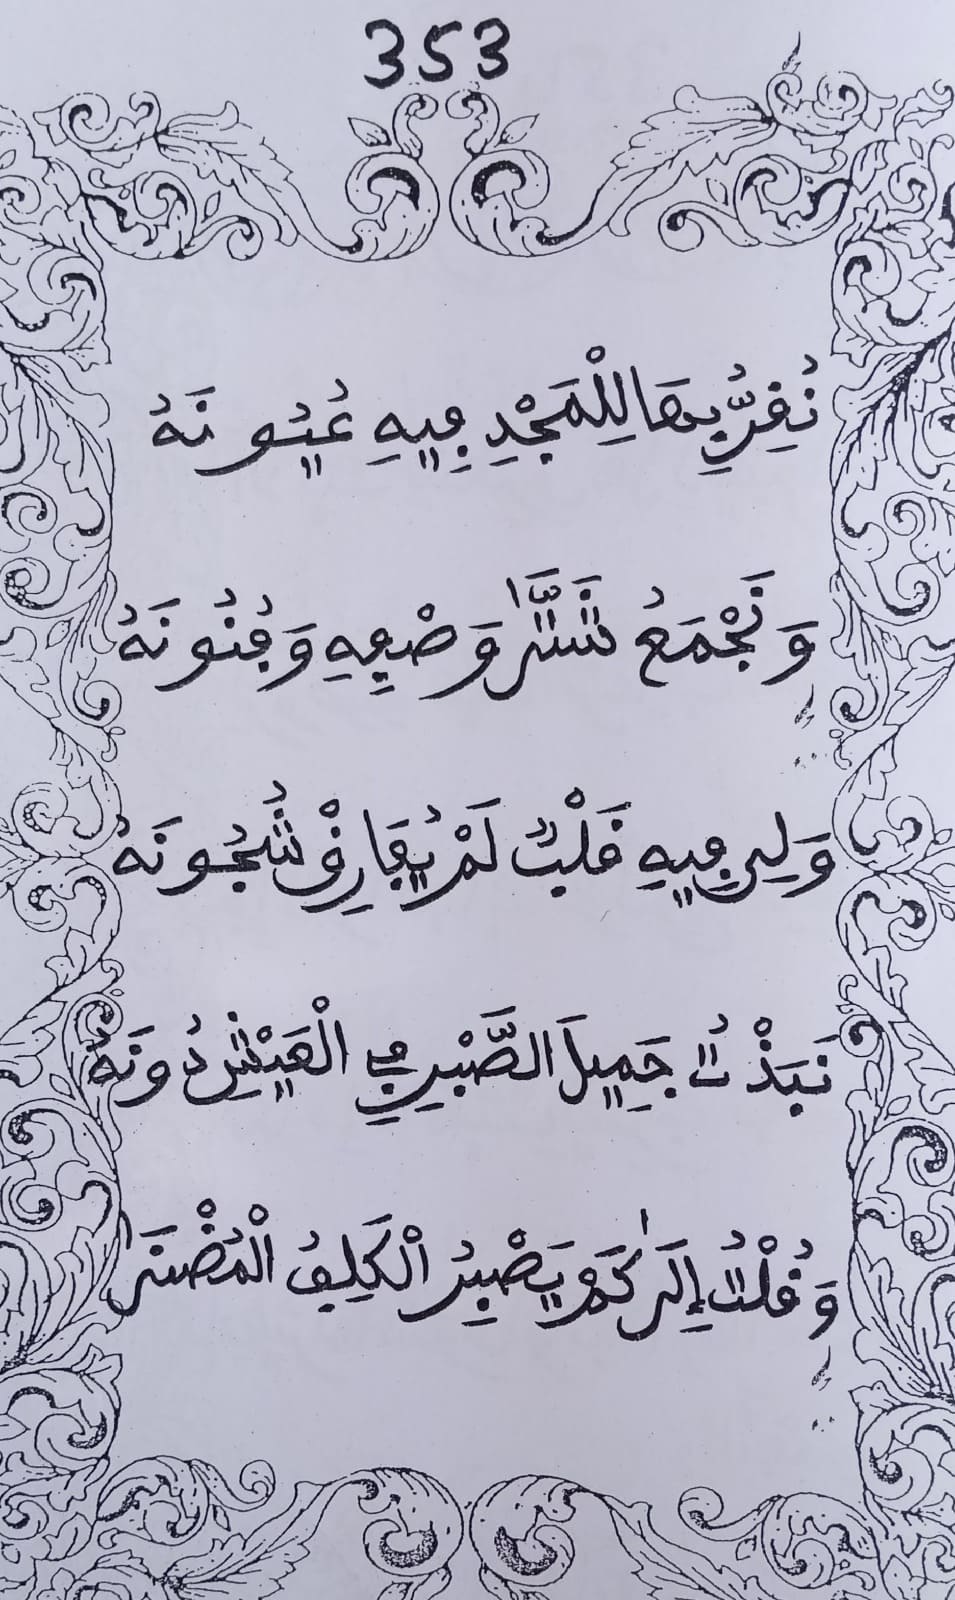 353
نُفِرُّ بِهَا لِلْمَجْدِ فِيهِ عُيُونَهُ
وَنَجْمَعُ شَتَّى وَضْعِهِ وَفُنُونَهُ
وَلِي فِيهِ قَلْبٌ لَمْ يُفَارِقْ شُجُونَهُ
نَبَذْتُ جَمِيلَ الصَّبْرِ فِي الْعَيْشِ دُونَهُ
وَقُلْتُ إِلَى كَمْ يَصْبِرُ الْكَلِفُ الْمُضْنَى